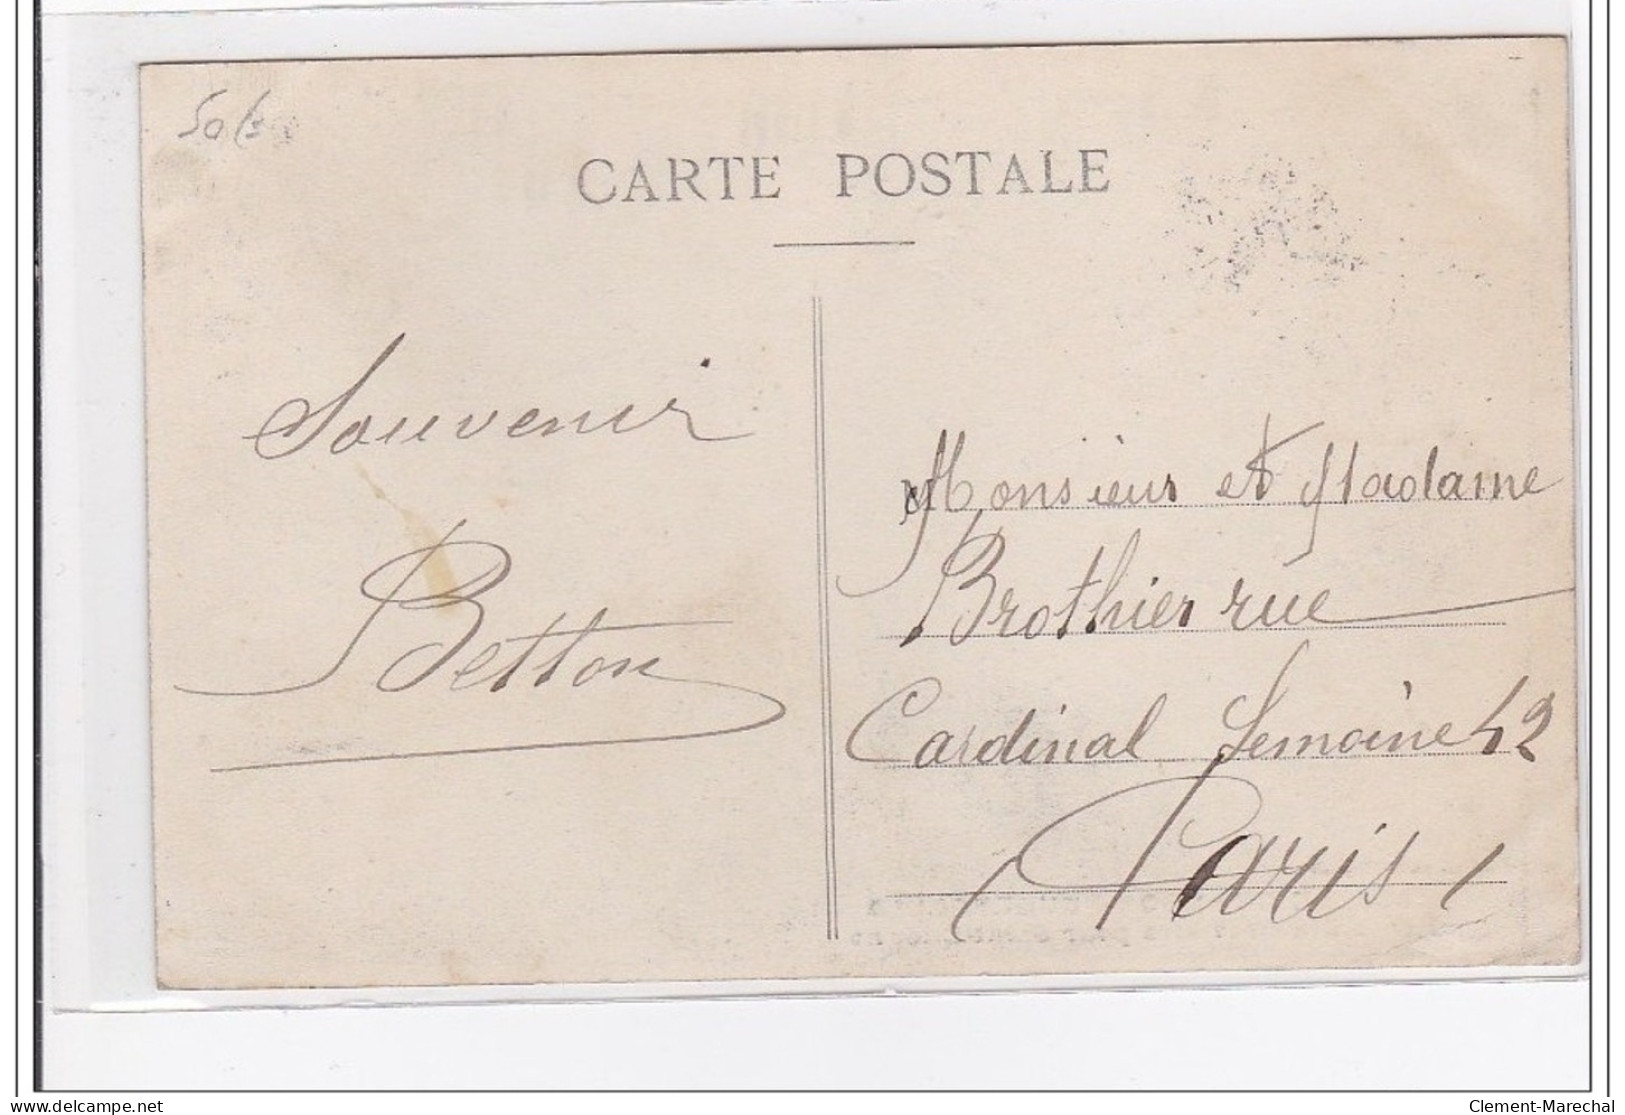 CARTE POSTALE
Souvenir
Betton
Monsieur et Madame
Brothier rue
Cardinal Lemoine 42
Paris
delcampe.net
Clement-Marechal